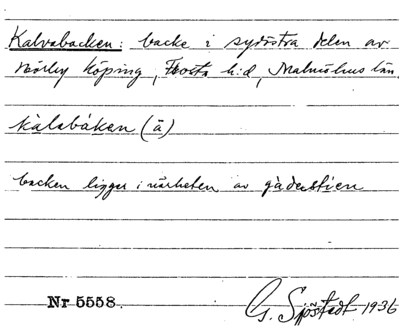 Kalvabacken: backe i sydöstra delen av
Hörby köping, Frosta h:d, Malmöhus län.
kàlabákan (ā)
backen ligger i närheten av gàdestien
Nr 5558.
G. Sjöstedt 1936